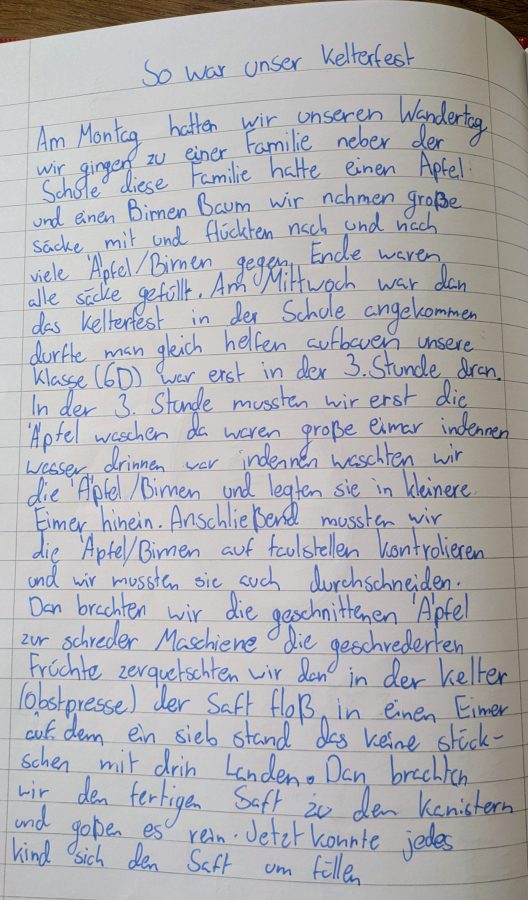 So war unser Kelterfest
Am Montag hatten wir unseren Wandertag
wir gingen zu einer Familie neber der
Schule diese Familie hatte einen Apfel
und einen Birnen Baum wir nahmen große
säcke mit und flückten nach und nach
viele Äpfel/Birnen gegen Ende waren
alle säcke gefüllt. Am Mittwoch war dan
das Kelterfest in der Schule angekommen
durfte man gleich helfen aufbauen unsere
Klasse (6D) war erst in der 3. Stunde dran.
In der 3. Stunde mussten wir erst die
Äpfel waschen da waren große eimar indennen
wasser drinnen war indennen waschten wir
die Äpfel/Birnen und legten sie in kleinere
Eimer hinein. Anschließend mussten wir
die Äpfel/Birnen auf faulstellen kontrolieren
und wir mussten sie auch durchschneiden.
Dan brachten wir die geschnittenen Äpfel
zur schreder Maschiene die geschrederten
Früchte zerquetschten wir dan in der Kelter
(Obstpresse) der Saft floß in einen Eimer
auf dem ein sieb stand das keine stück-
schen mit drin Landen. Dan brachten
wir den fertigen Saft zu den kanistern
und goßen es rein. Jetzt konnte jedes
kind sich den Saft um füllen